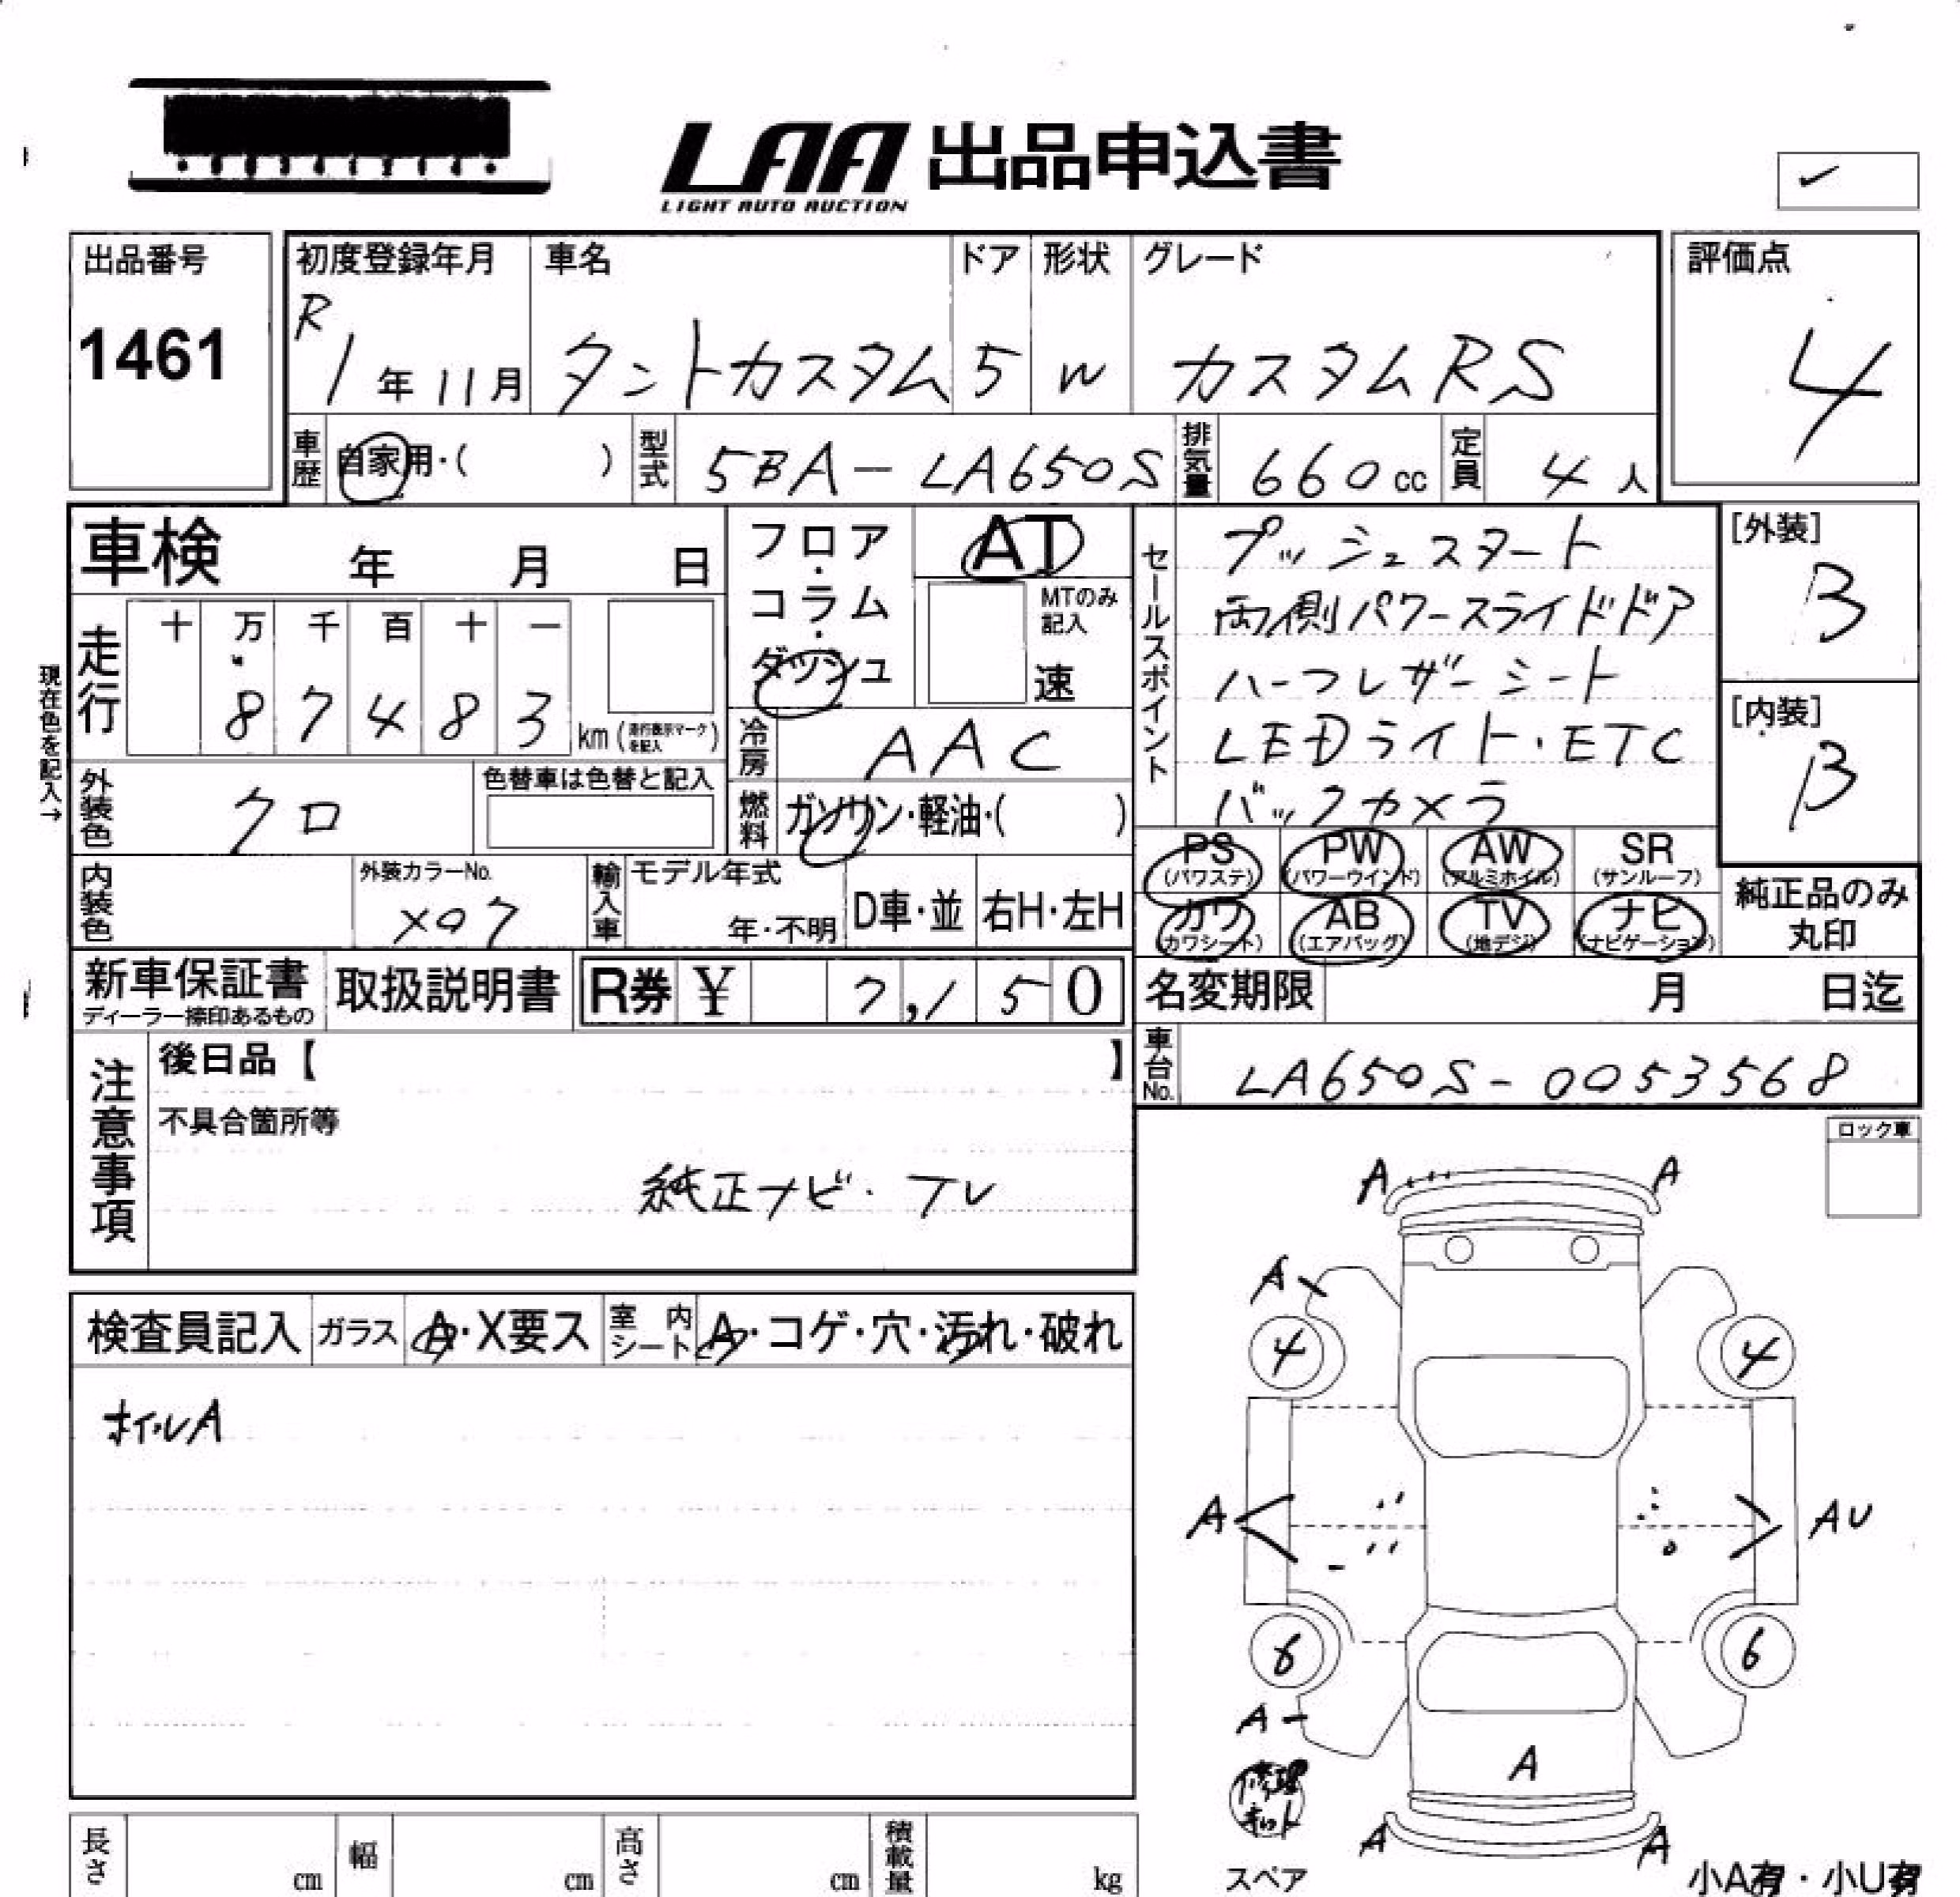 LAA 出品申込書
LIGHT AUTO AUCTION
出品番号
1461
初度登録年月
R1年11月
車名
タントカスタム
ドア
5
形状
W
グレード
カスタムRS
評価点
4
車歴 自家用・( )
型式 5BA-LA650S
排気量 660cc
定員 4人
車検 年 月 日
フロア・コラム・ダッシュ
AT
MTのみ記入
速
セールスポイント
プッシュスタート
両側パワースライドドア
ハーフレザーシート
LEDライト・ETC
バックカメラ
[外装]
B
[内装]
B
現在色を記入→
走行
十 万 千 百 十 一
8 7 4 8 3 km(走行表示マークを記入)
冷房 AAC
外装色 クロ
色替車は色替と記入
燃料 ガソリン・軽油・( )
内装色
外装カラーNo.
X07
輸入車 モデル年式
年・不明
D車・並
右H・左H
PS (パワステ)
PW (パワーウインド)
AW (アルミホイル)
SR (サンルーフ)
カワ (カワシート)
AB (エアバッグ)
TV (地デジ)
ナビ (ナビゲーション)
純正品のみ丸印
新車保証書
ディーラー捺印あるもの
取扱説明書
R券 ¥ 7,150
名変期限 月 日迄
車台No. LA650S-0053568
注意事項
後日品【 】
不具合箇所等
純正ナビ・TV
ロック車
検査員記入
ガラス A・X要ス
室内シート A・コゲ・穴・汚れ・破れ
ホイルA
A A
A
4 4
A AU
6 6
A
A
修理キット
A A
スペア
小A有・小U有
長さ cm
幅 cm
高さ cm
積載量 kg